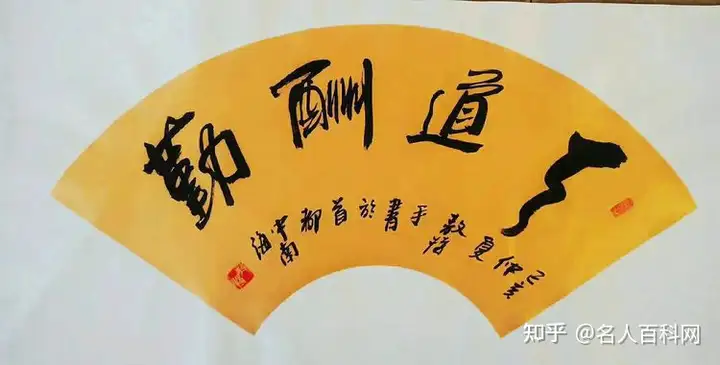 天道酬勤
己亥仲夏手書於首都中南海
知乎 @名人百科网